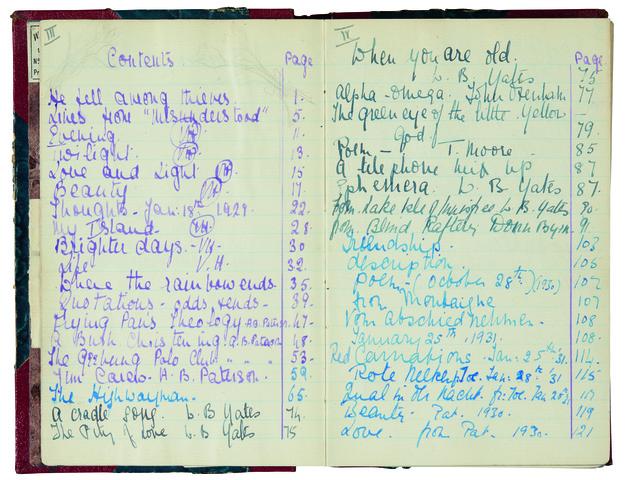 III
Contents Page
He fell among thieves 1.
Lines from "Misunderstood" 5.
Evening VH 11.
Twilight VH 13.
Love and Light VH 15
Beauty VH 17.
Thoughts - Jan: 18th 1929. 22.
My Island VH 28.
Brighter days - VH. 30
Life V.H. 32.
Where the rainbow ends 35.
Quotations - odds & ends. 39.
Flying Pan's Theology A.B. Paterson 47.
A Bush Christening A.B. Paterson 48.
The Geebung Polo Club " " " 53.
Jim Carew - A. B. Paterson. 59.
The Highwayman. 65.
A cradle song. W B Yates 74.
The Pity of Love W B Yates 75
IV
When you are old. Page
W. B. Yates 75
Alpha - Omega. John Oxenham 77
The green eye of the little Yellow
God 79.
Poem - T. Moore - 85
A telephone mix up 87
Ephemera. W. B Yates 87.
from Lake Isle of Innisfree W. B. Yates 90.
from Blind Raftery Donn Byrne 91
Friendship. 103
description 105
Poem - (October 28th) (1930) 107
from Montaigne 107
Vom Abschied nehmen. 108
January 25th, 1931. 108.
Red Carnations. Jan: 25th '31. 114.
Rote Nelken. Toc. Jan: 28th '31 115
Qual in der Nacht. fr: Toc. Jan 117
Beauty - Pat. 1930. 119
Love. from Pat. 1930. 121